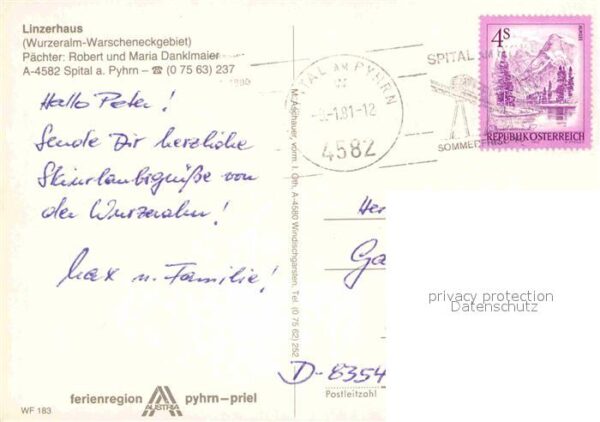 Linzerhaus
(Wurzeralm-Warscheneckgebiet)
Pächter: Robert und Maria Danklmaier
A-4582 Spital a. Pyhrn – ☎ (0 75 63) 237
Hallo Peter!
Sende Dir herzliche
Skiurlaubsgrüße von
der Wurzeralm!
Max u. Familie!
M. Aschauer, vorm. I. Orth, A-4580 Windischgarsten, Tel. (0 75 62) 252
AM PYHRN
1.81-12
4582
SPITAL AM
SOMMERFRIS
4S
REPUBLIK ÖSTERREICH
He
Ga
D-8354
Postleitzahl
privacy protection
Datenschutz
ferienregion AUSTRIA pyhrn–priel
WF 183